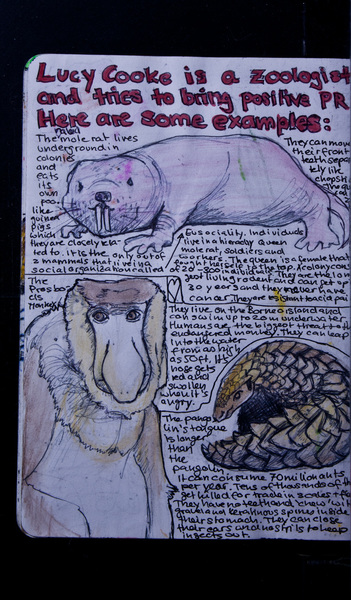 Lucy Cooke is a zoologist
and tries to bring positive PR
Here are some examples:
The naked mole rat lives
underground in
colonies
and
eats
its
own
poo
like
guinea
pigs
which
they are closely rela-
ted to. it is the only out of
2 mammals that live in a
social organization called
They can move
their front
teeth separa
tely like
chopsti
The qu
Eusociality. Individuals
live in a hierarchy Queen
mole rat, soldiers and
workers. The queen is a female that
fought herself to the top. A colony cons
of 20-300 individuals. They are the lon
gest living rodent and can get up
30 years and they never have
cancer. They are resistent to acid pai
The
Probos
cis
Monkey
They live on the Borneo island and
can swim up to 20m underwater
Humans are the biggest threat to th
endangered monkey. They can leap
into the water
from as high
as 50ft. Its
nose gets
red and
swollen
when it's
angry.
The pango
lin's tongue
is longer
than
the
pangolin.
It can consume 70 million ants
per year. Tens of thousands of th
get killed for trade in scales +
They have no teeth and 'chew' with
gravel and keratinous spines inside
their stomach. They can close
their ears and nostrils to keep
insects out.